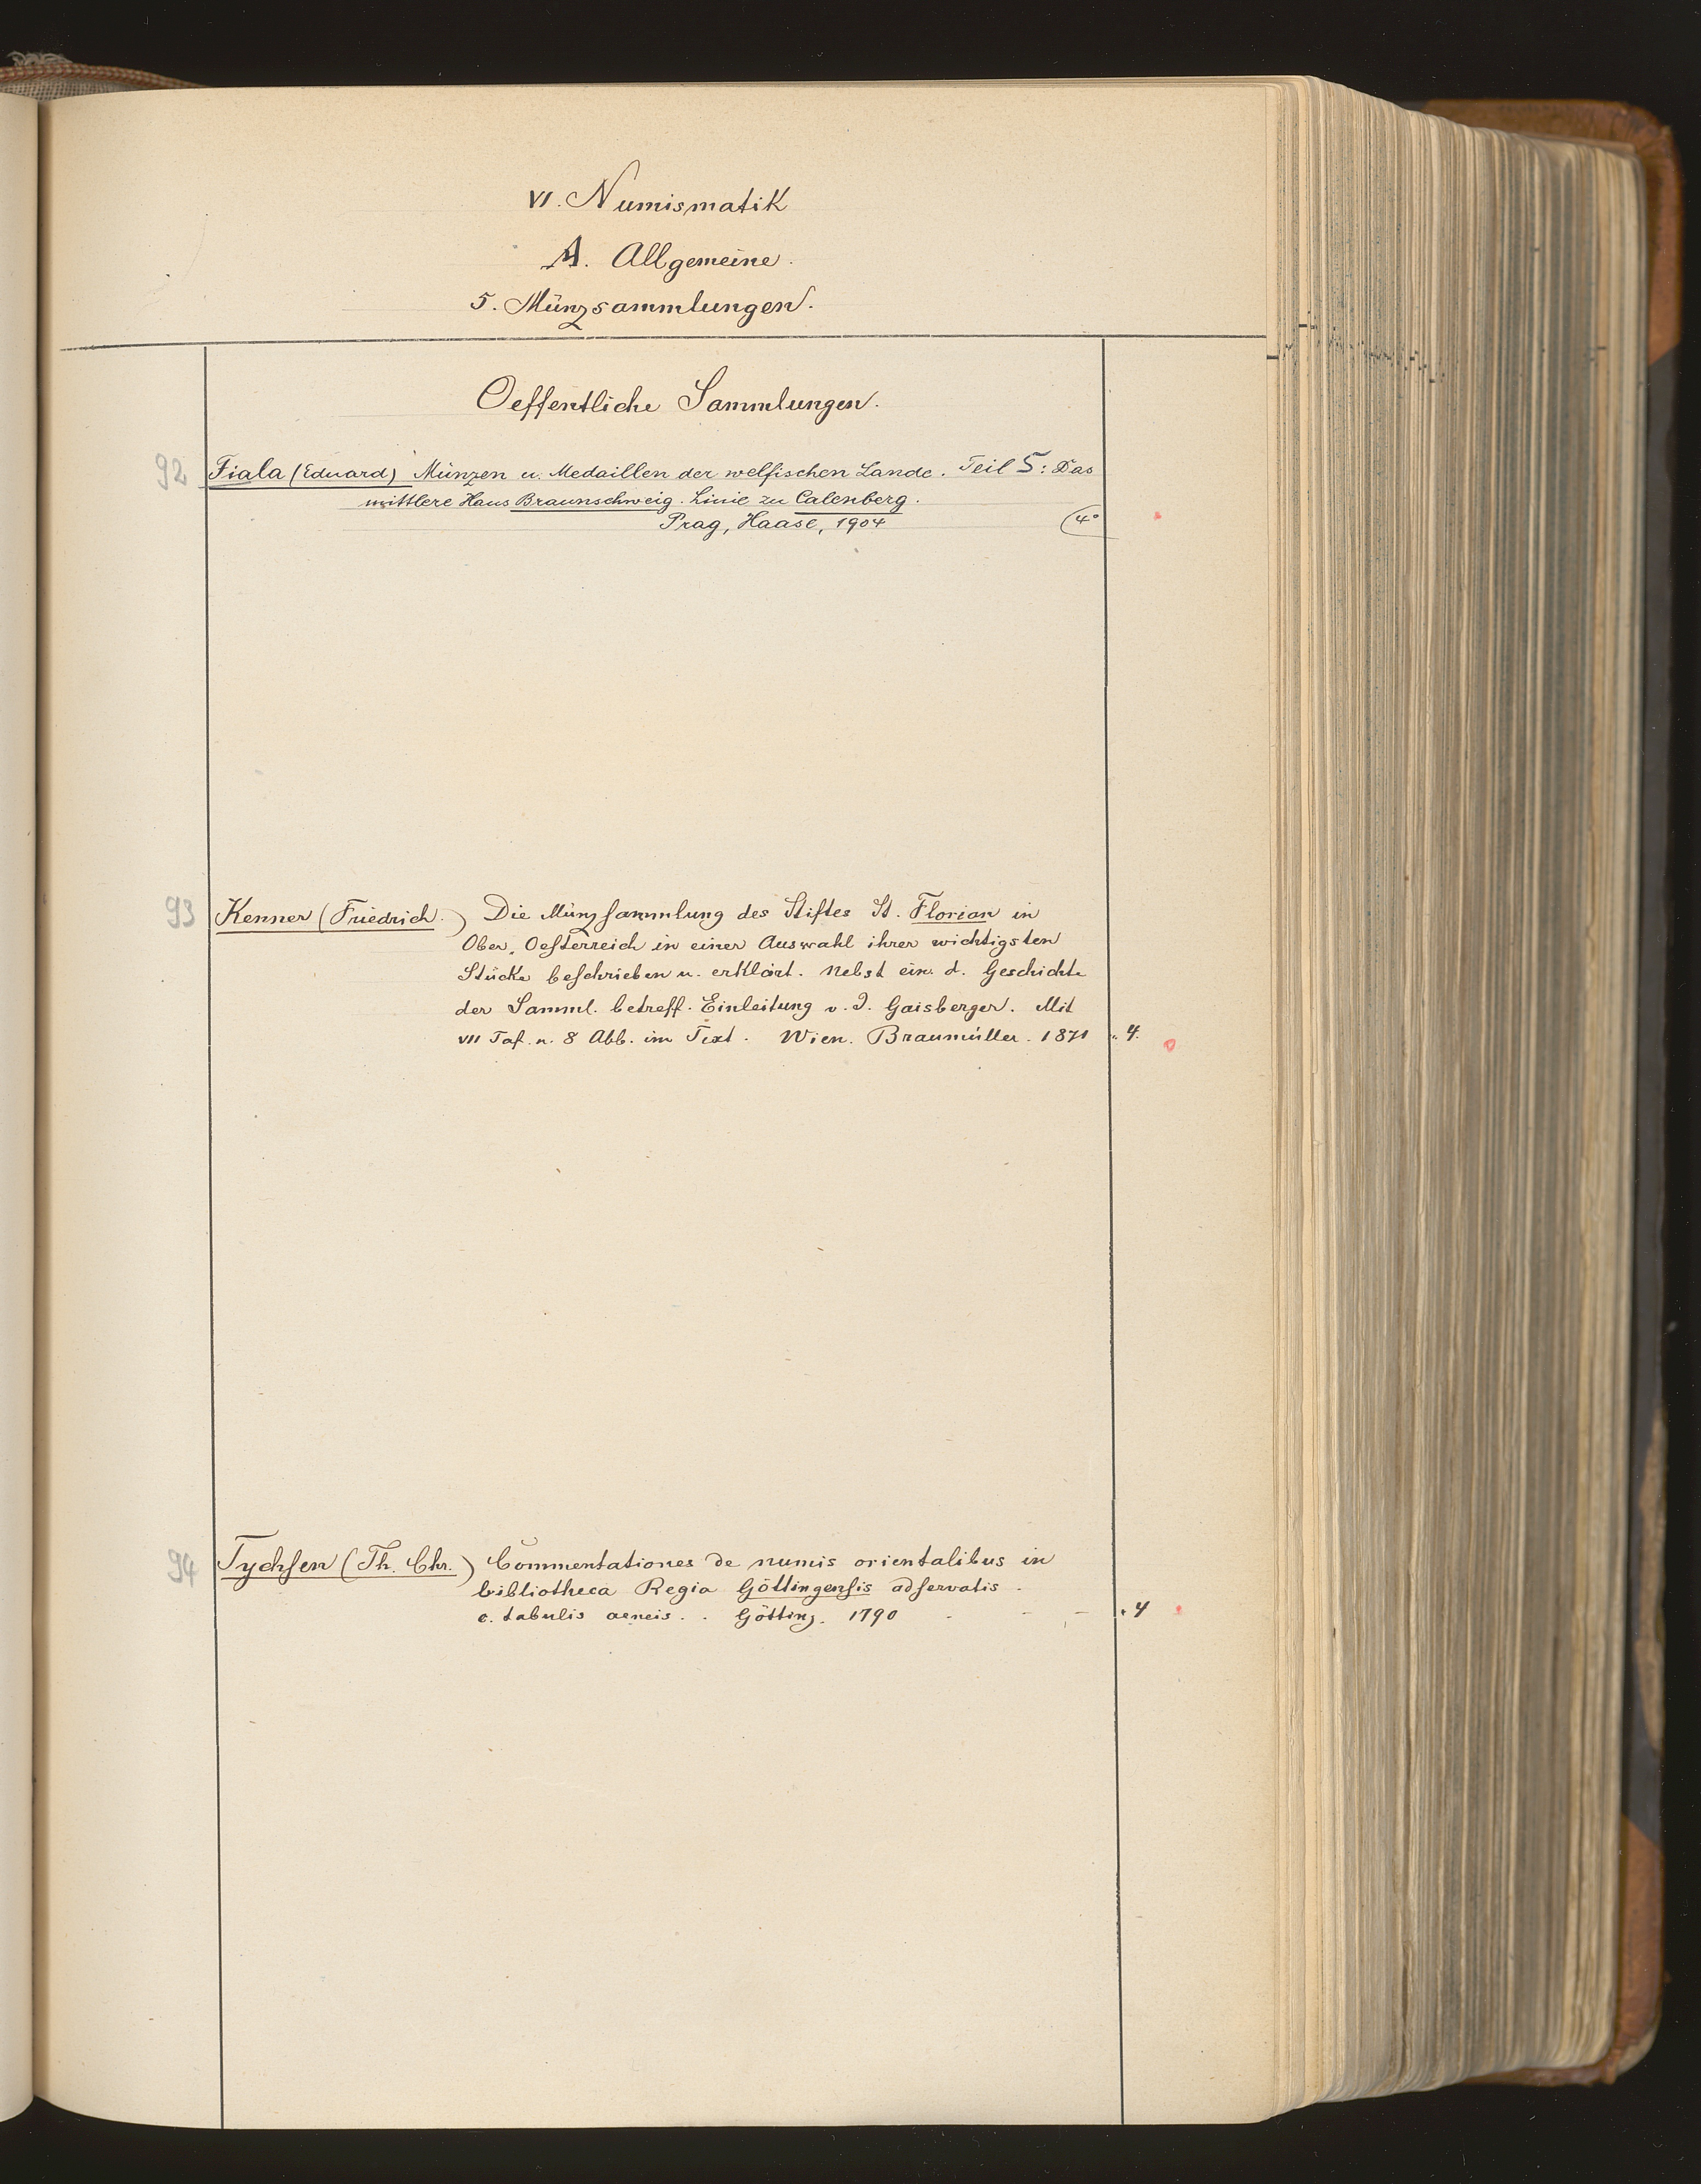 VI. Numismatik
A. Allgemeine.
5. Münzsammlungen.
Oeffentliche Sammlungen.
92 Fiala (Eduard) Münzen u. Medaillen der welfischen Lande. Teil 5: Das
mittlere Haus Braunschweig. Linie zu Calenberg.
Prag, Haase, 1904 (4°
93 Kenner (Friedrich.) Die Münzsammlung des Stiftes St. Florian in
Ober. Oesterreich in einer Auswahl ihrer wichtigsten
Stücke beschrieben u. erklärt. Nebst ein. d. Geschichte
der Samml. betreff. Einleitung v. J. Gaisberger. Mit
VII Taf. u. 8 Abb. im Text. Wien. Braumüller. 1871 „ 4.
94 Tychsen (Th. Chr.) Commentationes de numis orientalibus in
bibliotheca Regia Göttingensis adservatis.
c. tabulis aeneis. . Götting. 1790 - - - „ 4